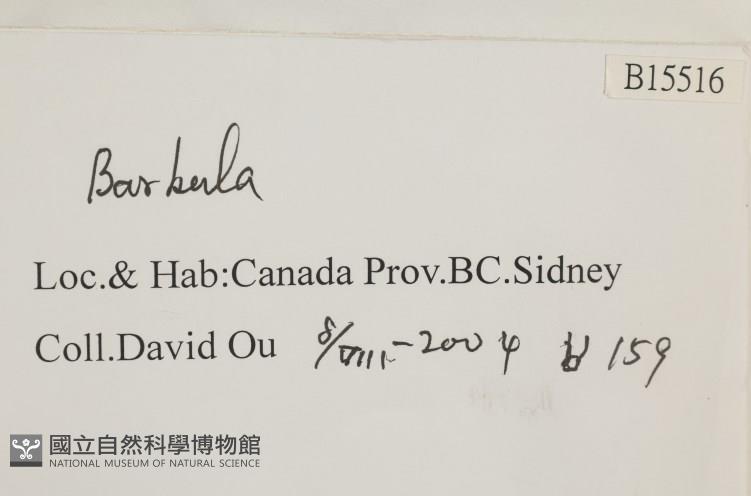 B15516
Barbula
Loc.& Hab:Canada Prov.BC.Sidney
Coll.David Ou 8/VIII-2004 159
國立自然科學博物館
NATIONAL MUSEUM OF NATURAL SCIENCE